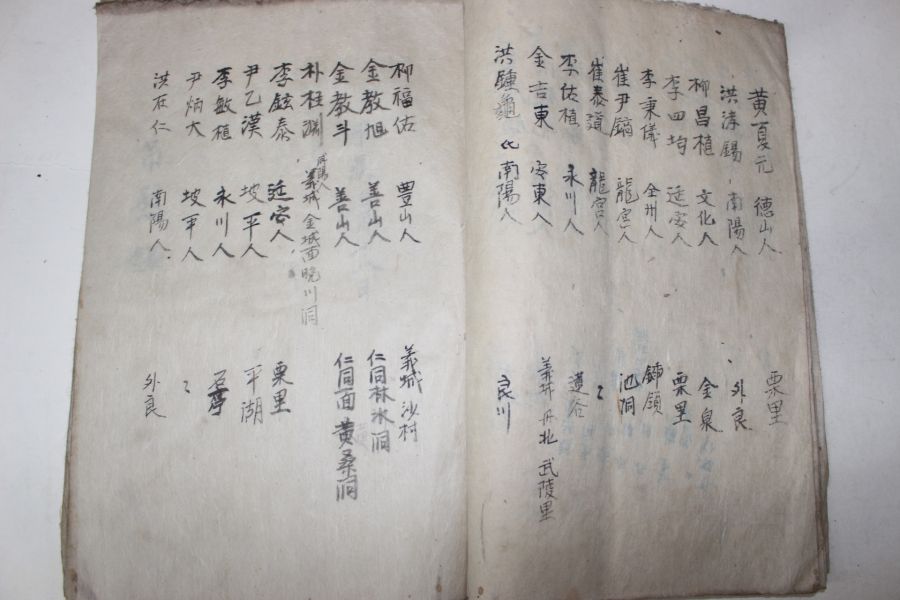 黃夏元 德山人 栗里
洪 錫 南陽人 外良
柳昌植 文化人 金泉
李四均 延安人 栗里
李秉儀 全州人
崔尹鎬 龍宮人 池洞
崔泰道 龍宮人 〻
李佑植 永川人 蓮谷
金吉東 安東人 義城 丹北 武陵里
洪鍾 南陽人 良川
柳福佑 豊山人 義城 沙村
金敎旭 善山人 仁同林水洞
金敎斗 善山人 仁同面 黃桑洞
朴柱淵 義城 金城面 晩川洞
李鉉泰 延安人 栗里
尹乙漢 坡平人 平湖
李敏植 永川人
尹炳大 坡平人 〻
洪在仁 南陽人 外良